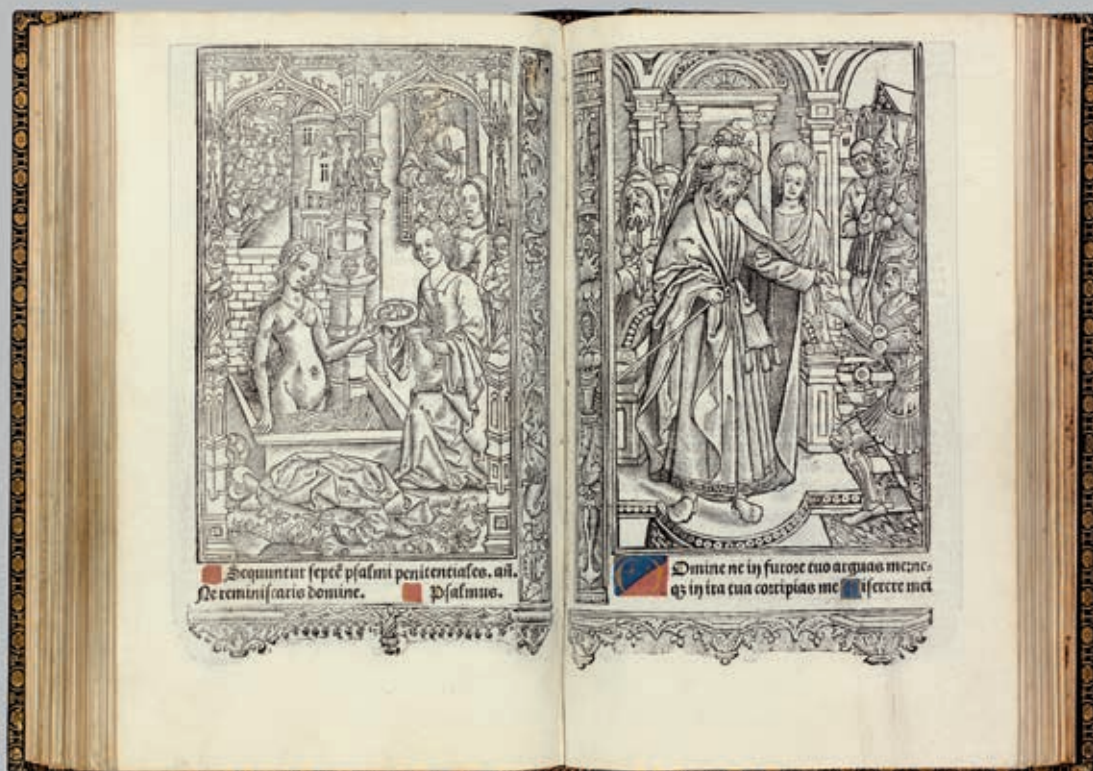 Sequuntur septē psalmi penitentiales. añ.
Ne reminiscaris domine. Psalmus.
Domine ne in furore tuo arguas me: ne-
qȝ in ira tua corripias me Miserere mei